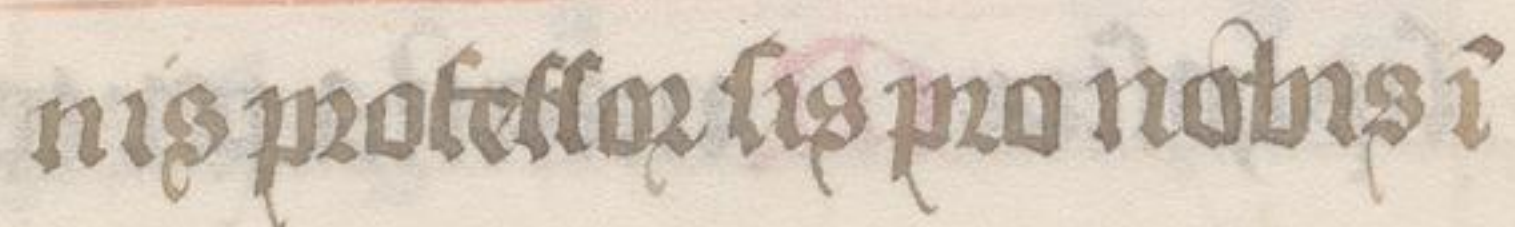 nis profeſſor ſis pro nobis ī